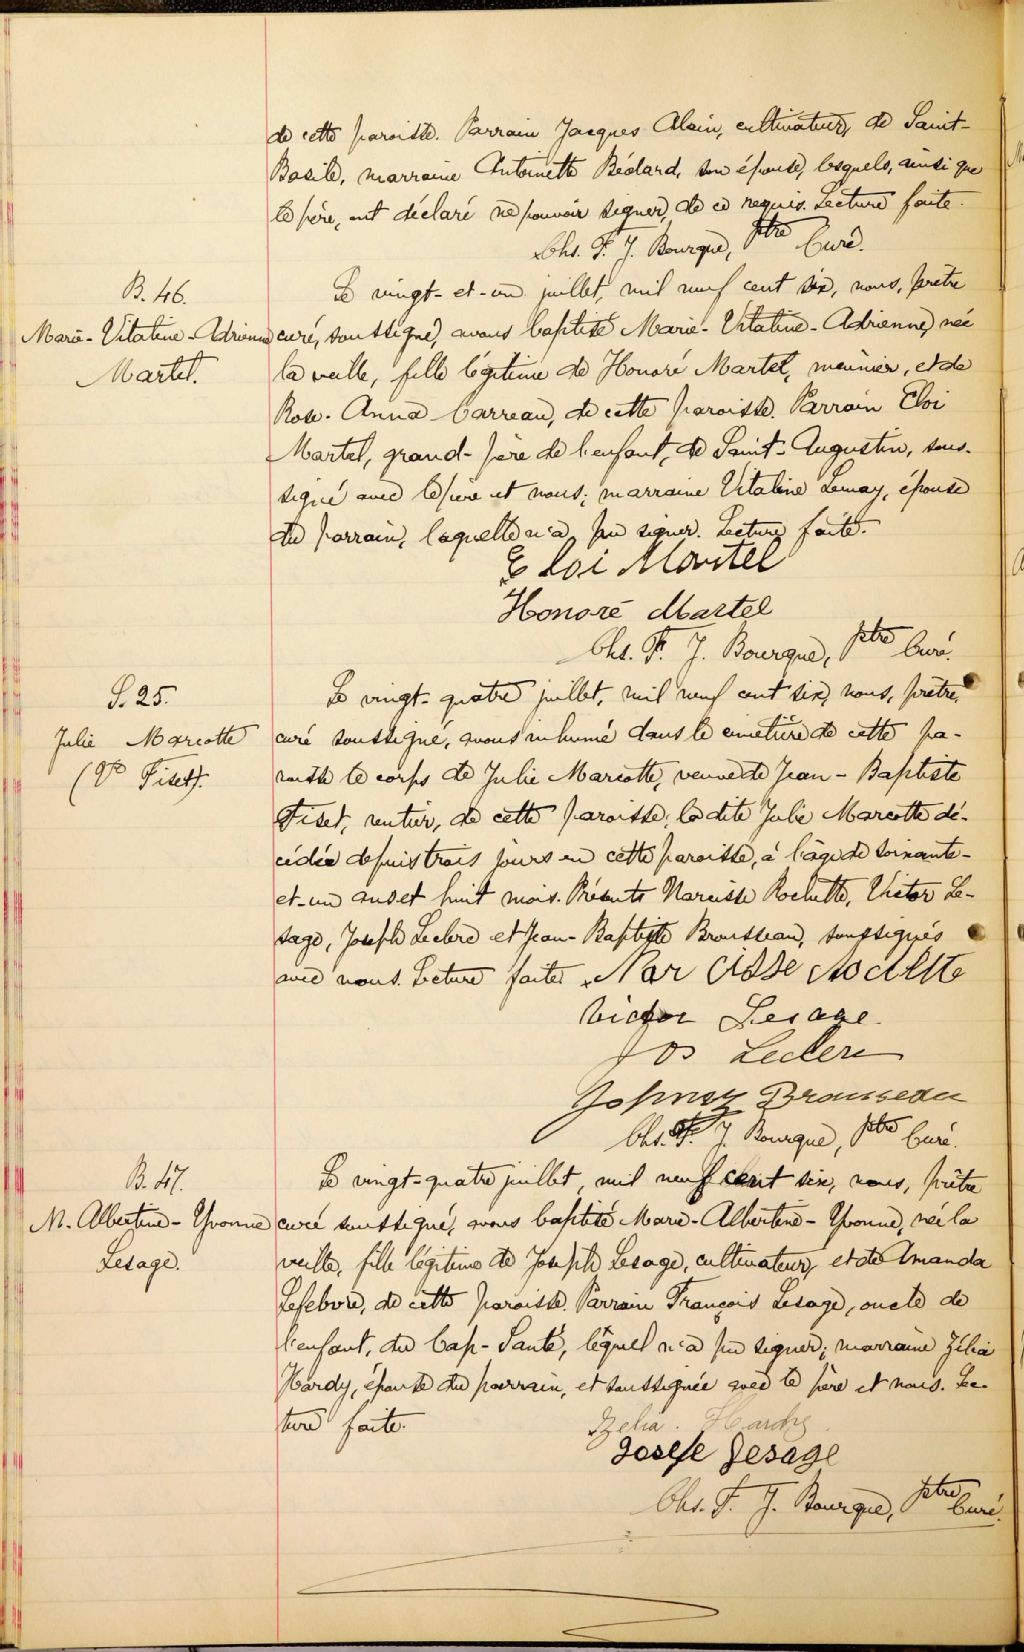 de cette paroisse. Parrain Jacques Alain, cultivateur, de Saint-
Basile, marraine Antoinette Bédard, son épouse, lesquels, ainsi que
le père, ont déclaré ne pouvoir signer, de ce requis. Lecture faite.
Chs. F. J. Bourque, ptre Curé.
B. 46.
Marie-Vitaline-Adrienne
Martel.
Le vingt-et-un juillet, mil neuf cent six, nous, prêtre
curé, soussigné, avons baptisé Marie-Vitaline-Adrienne, née
la veille, fille légitime de Honoré Martel, meunier, et de
Rose-Anna Carreau, de cette paroisse. Parrain Eloi
Martel, grand-père de l'enfant, de Saint-Augustin, sous-
signé avec le père et nous; marraine Vitaline Lemay, épouse
du parrain, laquelle n'a pu signer. Lecture faite.
Eloi Martel
Honoré Martel
Chs. F. J. Bourque, ptre Curé.
S. 25.
Julie Marcotte
(Vve Fiset).
Le vingt-quatre juillet, mil neuf cent six, nous, prêtre,
curé soussigné, avons inhumé dans le cimetière de cette pa-
roisse le corps de Julie Marcotte, veuve de Jean-Baptiste
Fiset, rentier, de cette paroisse; la dite Julie Marcotte dé-
cédée depuis trois jours en cette paroisse, à l'âge de soixante-
et-un ans et huit mois. Présents Narcisse Rochette, Victor Le-
sage, Joseph Leclerc et Jean-Baptiste Brousseau, soussignés
avec nous. Lecture faite. Nar Cisse Rochette
Victor Lesage
Jos Leclerc
Johnny Brousseau
Chs. F. J. Bourque, ptre Curé.
B. 47.
M.-Albertine-Yvonne
Lesage.
Le vingt-quatre juillet, mil neuf cent six, nous, prêtre
curé soussigné, avons baptisé Marie-Albertine-Yvonne, née la
veille, fille légitime de Joseph Lesage, cultivateur, et de Amanda
Lefebvre, de cette paroisse. Parrain François Lesage, oncle de
l'enfant, du Cap-Santé, lequel n'a pu signer; marraine Zélia
Hardy, épouse du parrain, et soussignée avec le père et nous. Lec-
ture faite.
Zelia Hardy
Josefe Lesage
Chs. F. J. Bourque, ptre Curé.